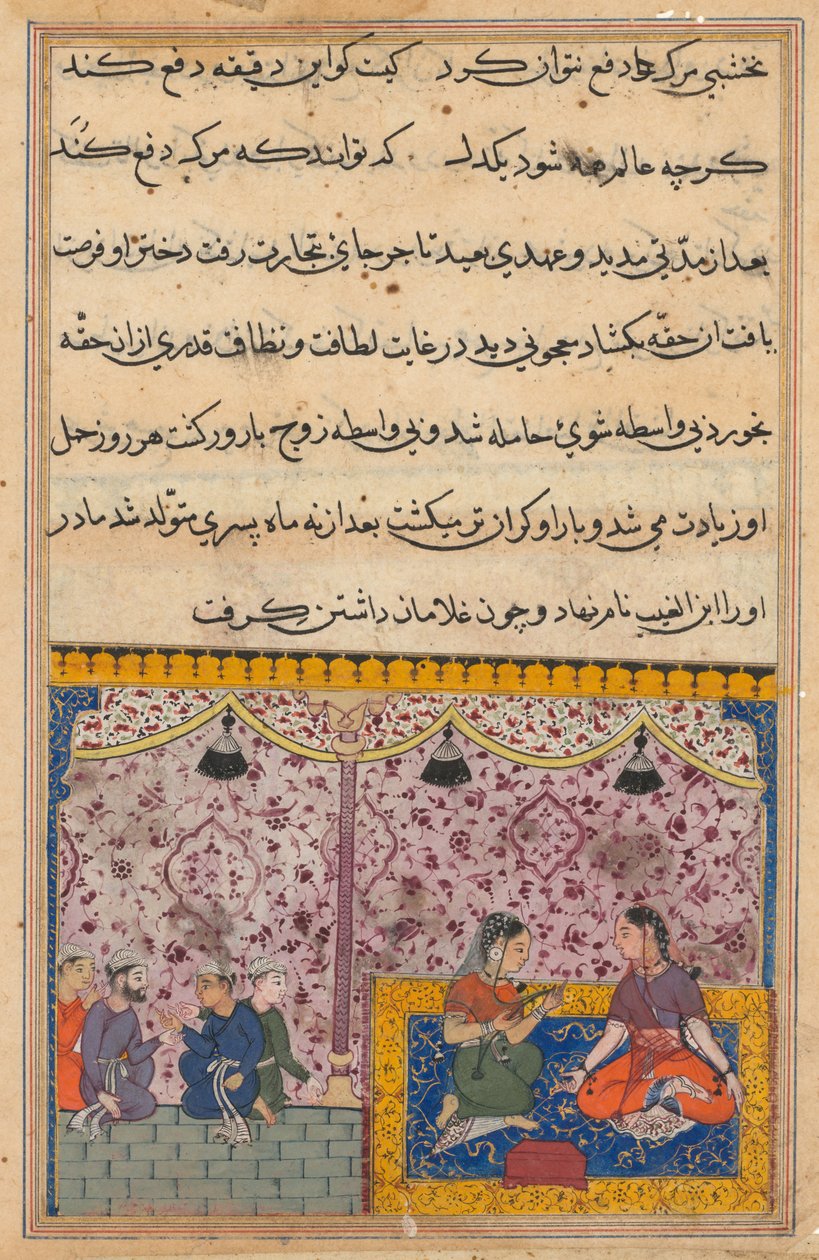 نخشبي مرك را دفع نتوان كرد كيست كو اين دقيقه دفع كند
كرچه عالم همه شود يكدل كه تواند كه مرك دفع كُند
بعد از مدّتي مديد و عهدي بعيد تاجر جايي بتجارت رفت دختر او فرصت
يافت ان حقّه بكشاد معجوني ديد در غايت لطافت و نظافت قدري از ان حقّه
بخورد بي واسطه شوئ حامله شد و بي واسطه زوج بارور كشت هر روز حمل
او زيادت مي شد و بار او كران تر ميكشت بعد از نه ماه پسري متوّلد شد مادر
او را ابن الغيب نام نهاد و چون غلامان داشتن كِرفت